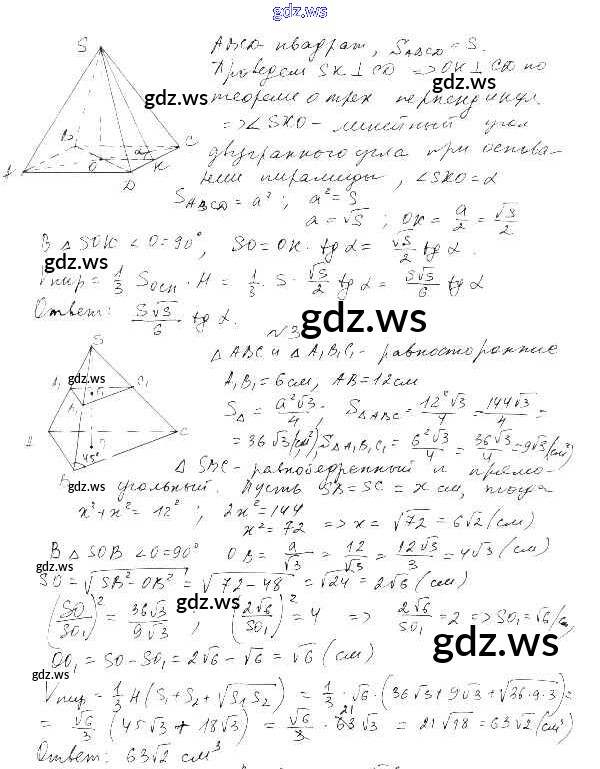 gdz.ws
ABCD квадрат, S_ABCD = S.
Проведем SK ⊥ CD => OK ⊥ CD по
теореме о трех перпендикул.
=> ∠SKO - линейный угол
двугранного угла при основа-
нии пирамиды, ∠SKO = α
S_ABCD = a²; a² = S
a = √S; OK = a/2 = √S/2
S
B
C
A
O
K
D
α
gdz.ws
В △SOK ∠O = 90°, SO = OK · tg α = √S/2 tg α.
gdz.ws
Vпир = 1/3 Sосн · H = 1/3 · S · √S/2 tg α = S√S/6 tg α
Ответ: S√S/6 tg α.
gdz.ws
№3
△ABC и △A₁B₁C₁ - равносторонние
A₁B₁ = 6 см, AB = 12 см
S△ = a²√3/4; S△ABC = 12²√3/4 = 144√3/4 =
= 36√3 (см²), S△A₁B₁C₁ = 6²√3/4 = 36√3/4 = 9√3 (см²)
S
gdz.ws
A₁
C₁
B₁
A
C
B
45°
gdz.ws
△SBC - равнобедренный и прямо-
угольный. Пусть SB = SC = x см, тогда
x² + x² = 12²; 2x² = 144
x² = 72 => x = √72 = 6√2 (см)
В △SOB ∠O = 90° OB = a/√3 = 12/√3 = 12√3/3 = 4√3 (см)
SO = √(SB² - OB²) = √(72 - 48) = √24 = 2√6 (см)
gdz.ws
(SO/SO₁)² = 36√3/9√3, (2√6/SO₁)² = 4 => 2√6/SO₁ = 2 => SO₁ = √6 (см)
gdz.ws
OO₁ = SO - SO₁ = 2√6 - √6 = √6 (см)
Vпир = 1/3 H (S₁ + S₂ + √(S₁S₂)) = 1/3 · √6 · (36√3 + 9√3 + √(36·9·3)) =
= √6/3 (45√3 + 18√3) = √6/3 · 63√3 = 21√18 = 63√2 (см³)
21
Ответ: 63√2 см³
gdz.ws